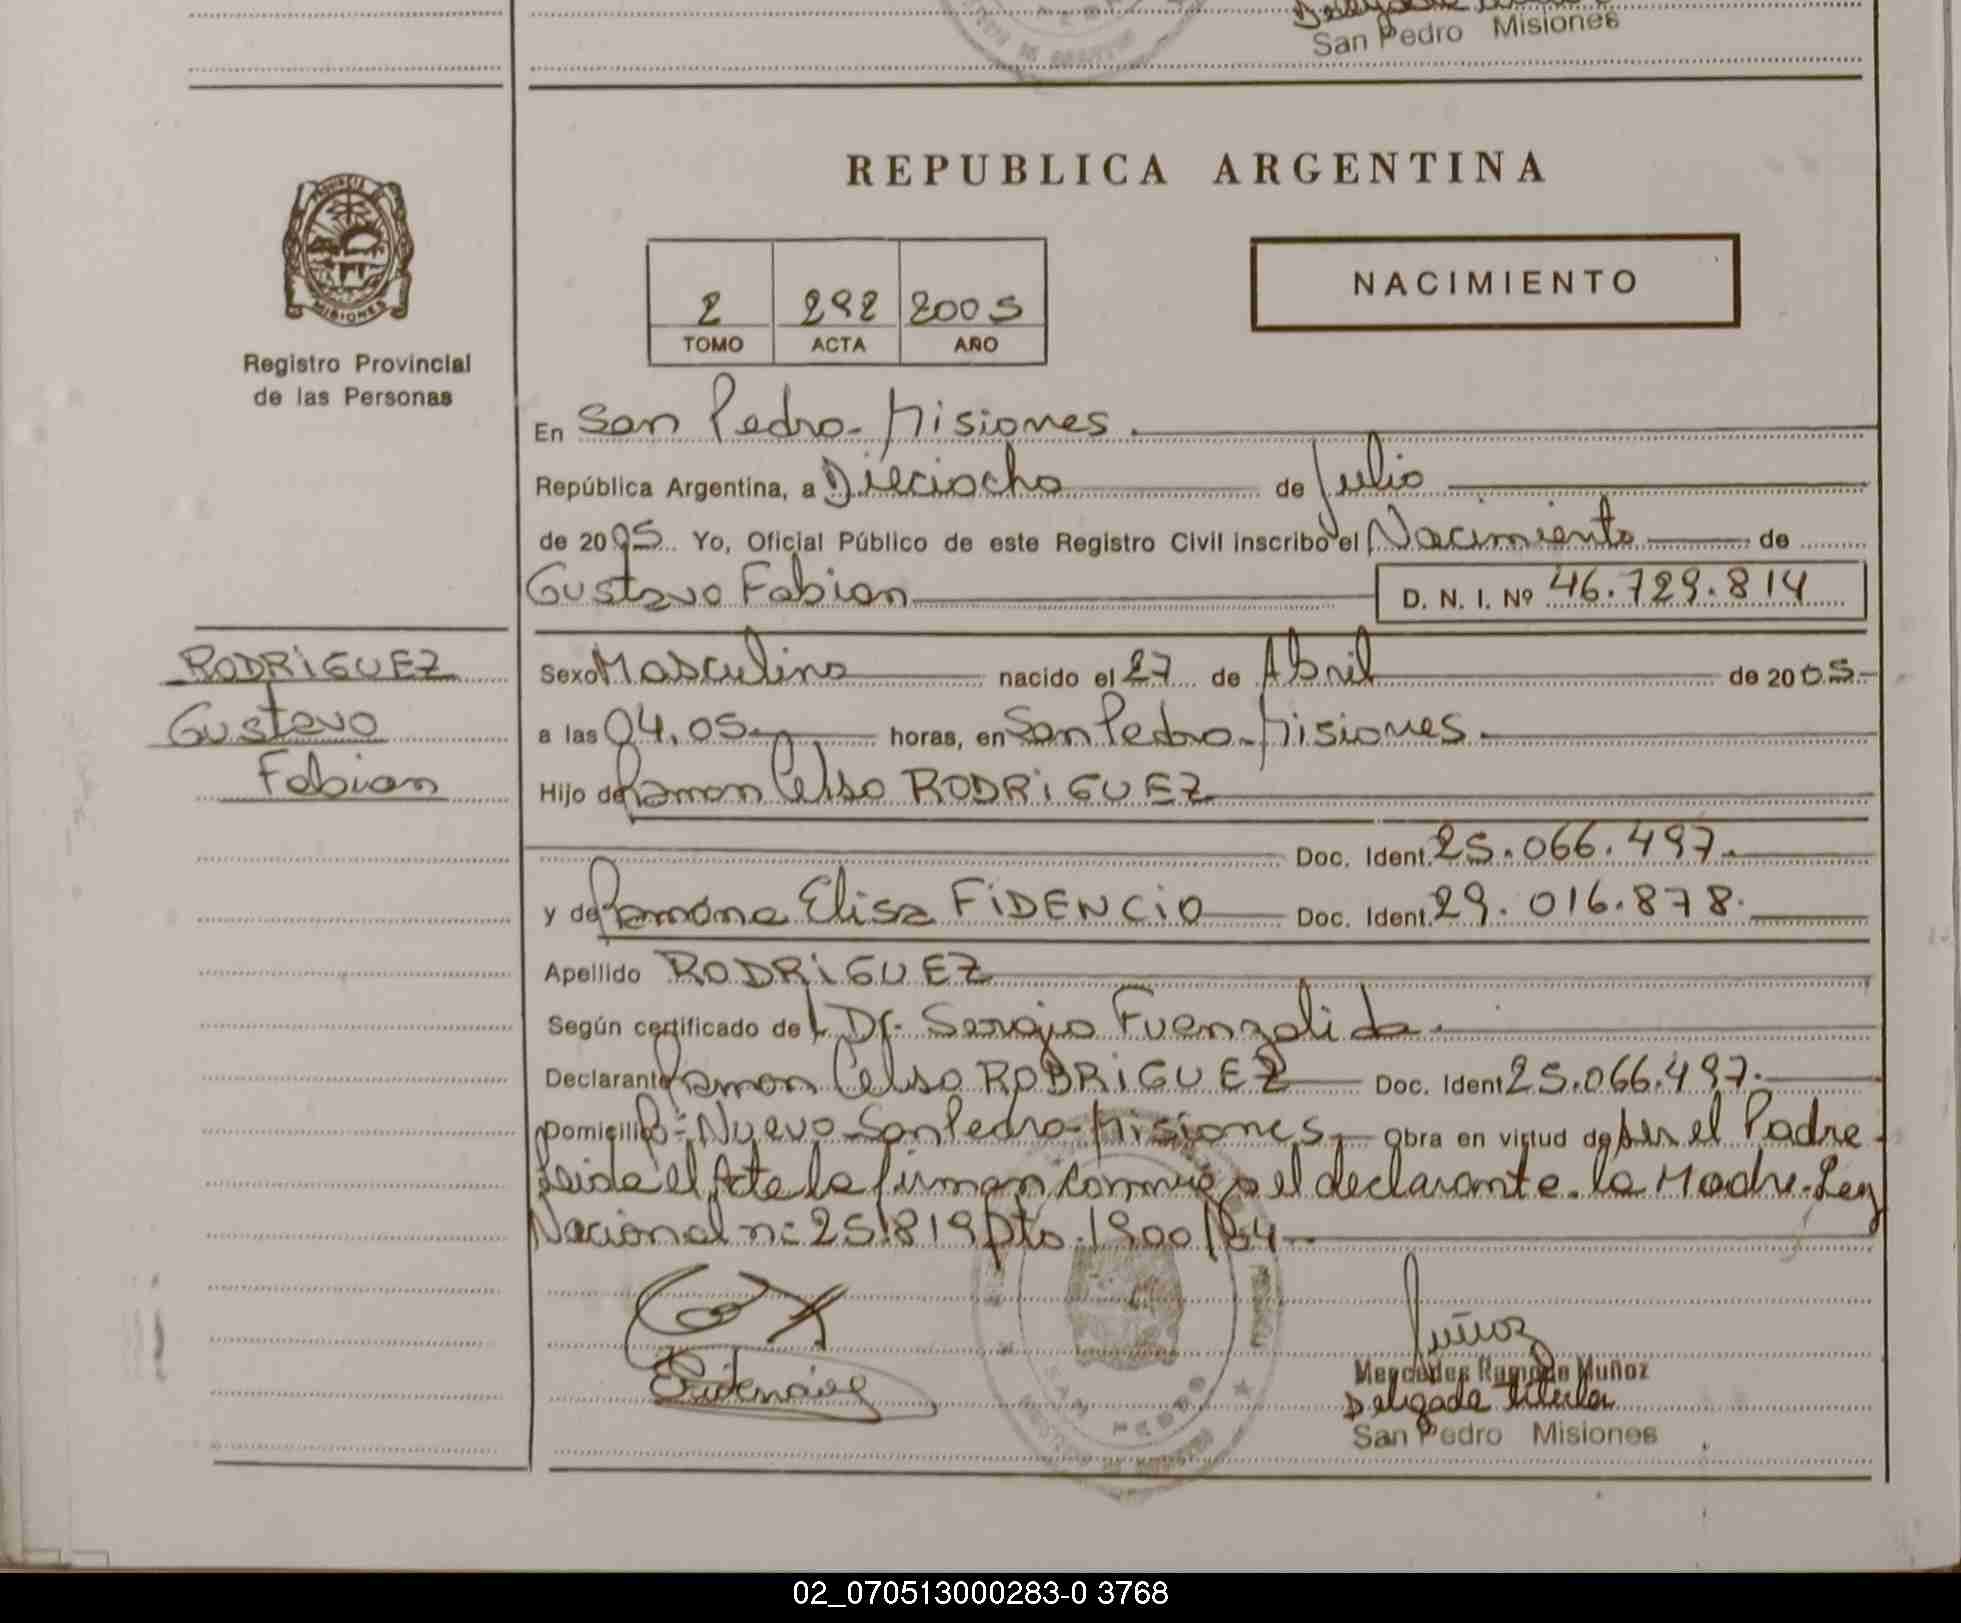 San Pedro Misiones
REPUBLICA ARGENTINA
MISIONES
Registro Provincial
de las Personas
2 292 2005
TOMO ACTA AÑO
NACIMIENTO
En San Pedro - Misiones.
República Argentina, a Dieciocho de Julio
de 2005 Yo, Oficial Público de este Registro Civil inscribo el Nacimiento de
Gustavo Fabian D. N. I. Nº 46.729.814
RODRIGUEZ
Gustavo
Fabian
Sexo Masculino nacido el 27 de Abril de 2005.-
a las 04.05.- horas, en San Pedro - Misiones.
Hijo de Ramon Celso RODRIGUEZ
Doc. Ident. 25.066.497.
y de Ramona Elisa FIDENCIO Doc. Ident. 29.016.878.
Apellido RODRIGUEZ
Según certificado de L Dr. Sergio Fuenzalida.
Declarante Ramon Celso RODRIGUEZ Doc. Ident. 25.066.497.
Domicilio Bº Nuevo - San Pedro - Misiones. Obra en virtud de ser el Padre.
Leida el Acta la firman conmigo el declarante. la Madre. Ley
Nacional nº 25.819 Dto. 1900/04
Muñoz
Mercedes Ramona Muñoz
Delegada titular
San Pedro Misiones
SAN PEDRO
02_070513000283-0 3768